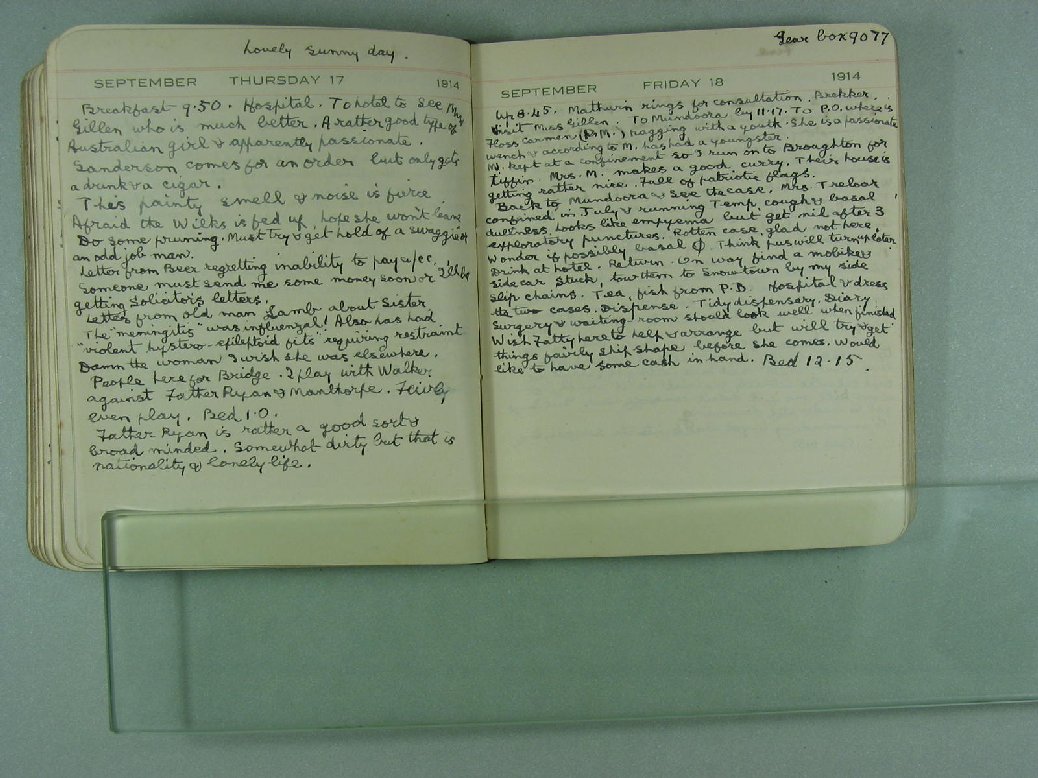 Lovely sunny day.
SEPTEMBER THURSDAY 17 1914
Breakfast 9.50. Hospital. To hotel to see Miss
Gillen who is much better. A rather good type of
Australian girl & apparently passionate.
Sanderson comes for an order but only gets
a drunk & a cigar.
This painty smell & noise is fierce
Afraid the Wilks is fed up, hope she won't leave
Do some pruning. Must try & get hold of a swaggie or
an odd job man.
Letter from Beer regretting inability to pay a/cc.
Someone must send me some money soon or I'll be
getting Solicitors letters.
Letter from old man Lamb about Sister
The "meningitis" was influenzal! Also has had
"violent hystero-epileptoid fits" requiring restraint
Damn the woman I wish she was elsewhere.
People here for Bridge. I play with Walker
against Father Ryan & Manthorpe. Fairly
even play. Bed 1.0.
Father Ryan is rather a good sort &
broad minded. Somewhat dirty but that is
nationality & lonely life.
Gear box 9077
SEPTEMBER FRIDAY 18 1914
Up 8.45. Mathwin rings for consultation. Brekker.
Visit Miss Gillen. To Mundoora by 11.17. To P.O. where is
Floss Carmen ( M.) ragging with a youth. She is a passionate
wench & according to M. has had a youngster.
M. kept at a confinement so I run on to Broughton for
tiffin. Mrs. M. makes a good curry. Their house is
getting rather nice. Full of patriotic flags.
Back to Mundoora & see the case. Mrs. Treloar
confined in July & running Temp, cough & basal
dullness. Looks like empyema but get nil after 3
exploratory punctures. Rotten case, glad not here.
Wonder if possibly basal φ. Think pus will turn up later
Drink at hotel. Return. On way find a mobike &
side car stuck, tow them to Snowtown by my side
slip chains. Tea, fish from P.B. Hospital & dress
its two cases. Dispense. Tidy dispensary. Diary
Surgery & waiting room should look well when finished
Wish Fatty here to help & arrange but will try & get
things fairly ship shape before she comes. Would
like to have some cash in hand. Bed 12.15.